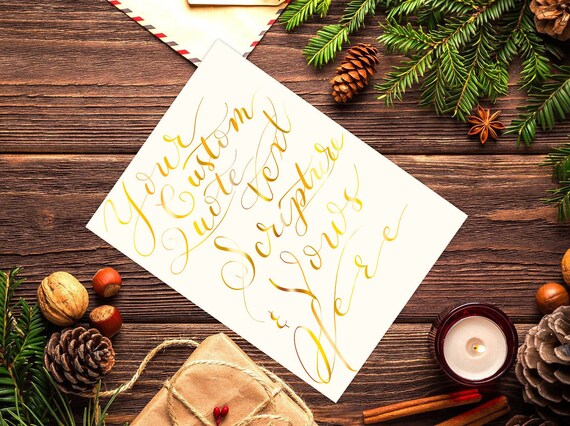 Your
Custom
Quote text
Scripture
& Vows
Here